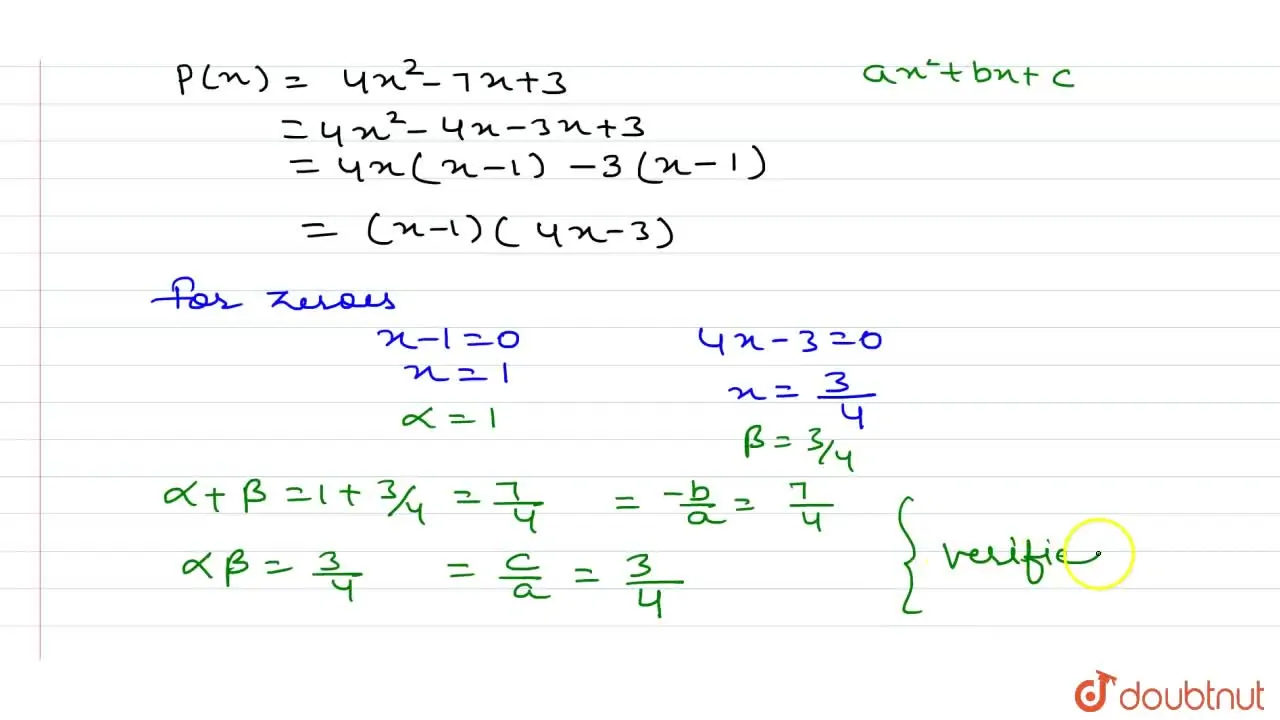 P(x) = 4x² - 7x + 3
ax² + bx + c
= 4x² - 4x - 3x + 3
= 4x(x-1) - 3(x-1)
= (x-1)(4x-3)
for zeroes
x-1=0
4x-3=0
x=1
x = 3/4
α = 1
β = 3/4
α+β = 1+3/4 = 7/4 = -b/a = 7/4
αβ = 3/4 = c/a = 3/4
} verifie
doubtnut